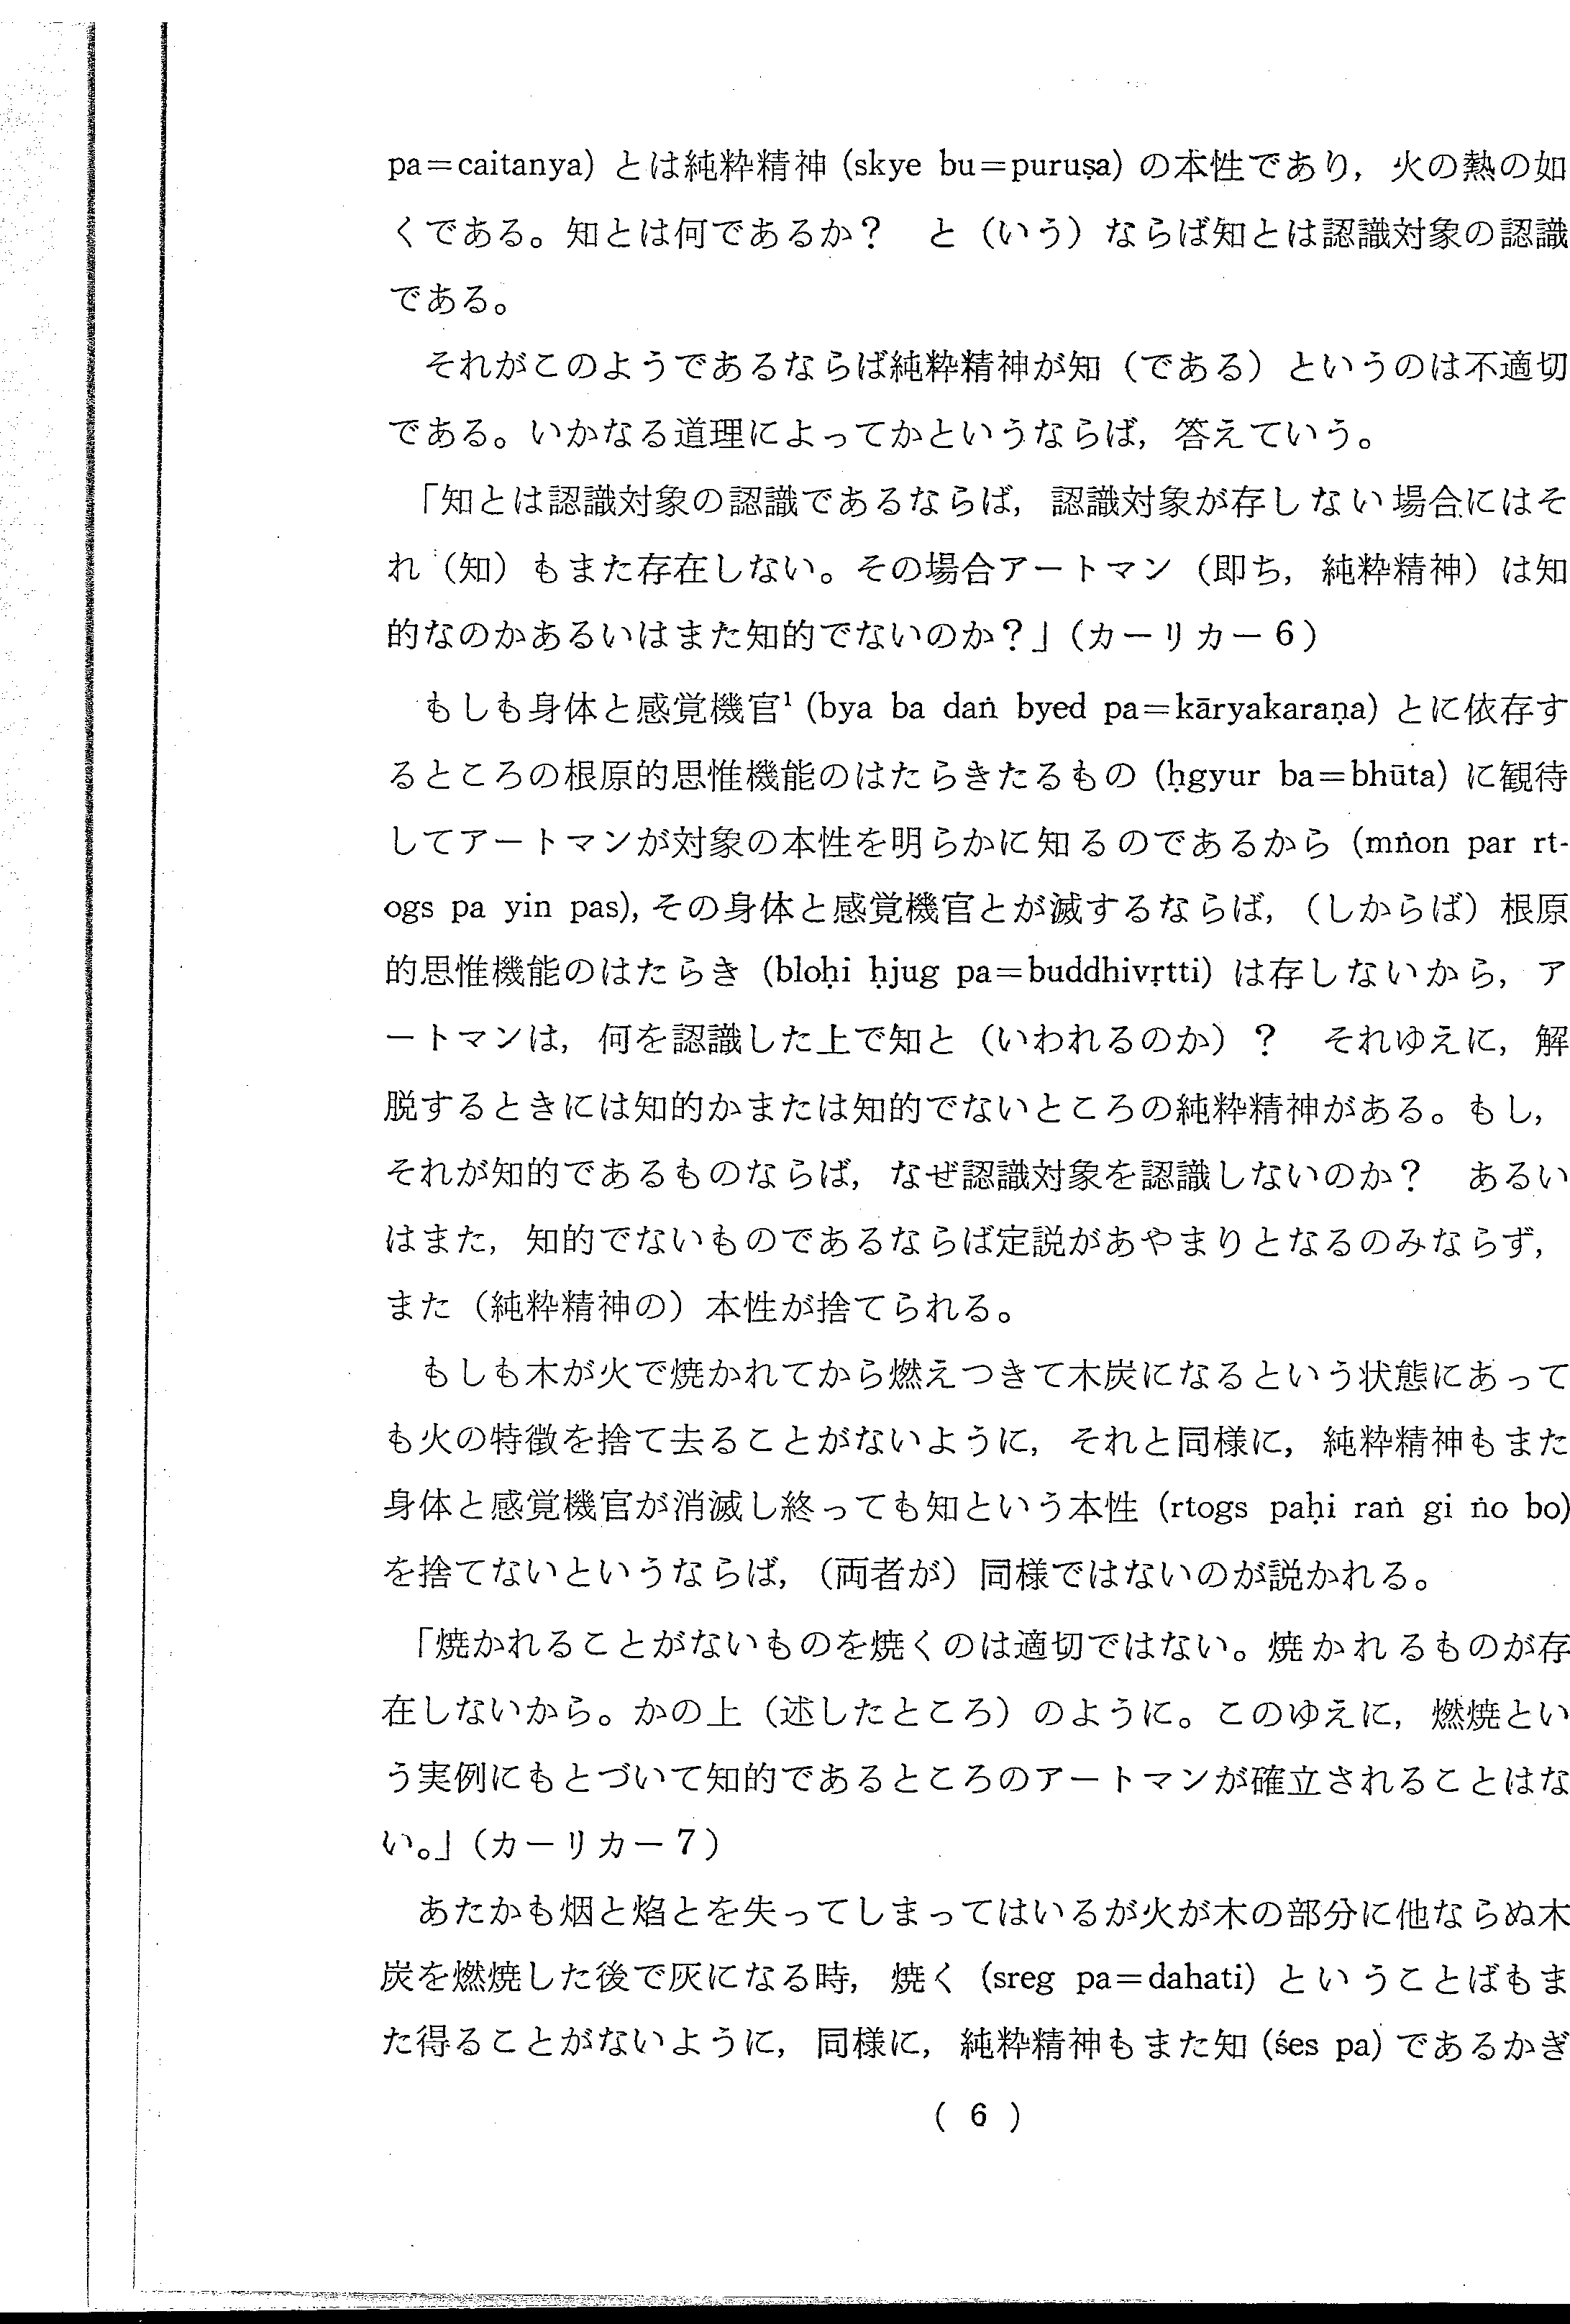 pa＝caitanya) とは純粋精神 (skye bu＝puruṣa) の本性であり，火の熱の如
くである。知とは何であるか？　と（いう）ならば知とは認識対象の認識
である。
それがこのようであるならば純粋精神が知（である）というのは不適切
である。いかなる道理によってかというならば，答えていう。
「知とは認識対象の認識であるならば，認識対象が存しない場合にはそ
れ（知）もまた存在しない。その場合アートマン（即ち，純粋精神）は知
的なのかあるいはまた知的でないのか？」（カーリカー6）
もしも身体と感覚機官¹ (bya ba daṅ byed pa＝kāryakaraṇa) とに依存す
るところの根原的思惟機能のはたらきたるもの (ḥgyur ba＝bhūta) に観待
してアートマンが対象の本性を明らかに知るのであるから (mṅon par rt-
ogs pa yin pas), その身体と感覚機官とが滅するならば，（しからば）根原
的思惟機能のはたらき (bloḥi ḥjug pa＝buddhivṛtti) は存しないから，ア
ートマンは，何を認識した上で知と（いわれるのか）？　それゆえに，解
脱するときには知的かまたは知的でないところの純粋精神がある。もし，
それが知的であるものならば，なぜ認識対象を認識しないのか？　あるい
はまた，知的でないものであるならば定説があやまりとなるのみならず，
また（純粋精神の）本性が捨てられる。
もしも木が火で焼かれてから燃えつきて木炭になるという状態にあって
も火の特徴を捨て去ることがないように，それと同様に，純粋精神もまた
身体と感覚機官が消滅し終っても知という本性 (rtogs paḥi raṅ gi ṅo bo)
を捨てないというならば，（両者が）同様ではないのが説かれる。
「焼かれることがないものを焼くのは適切ではない。焼かれるものが存
在しないから。かの上（述したところ）のように。このゆえに，燃焼とい
う実例にもとづいて知的であるところのアートマンが確立されることはな
い。」（カーリカー7）
あたかも烟と焰とを失ってしまってはいるが火が木の部分に他ならぬ木
炭を燃焼した後で灰になる時，焼く (sreg pa＝dahati) ということばもま
た得ることがないように，同様に，純粋精神もまた知 (śes pa) であるかぎ
( 6 )